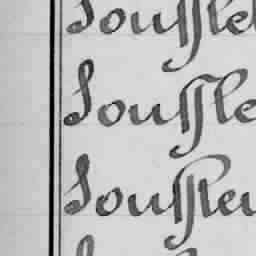 Souffle
Souffle
Souffleu